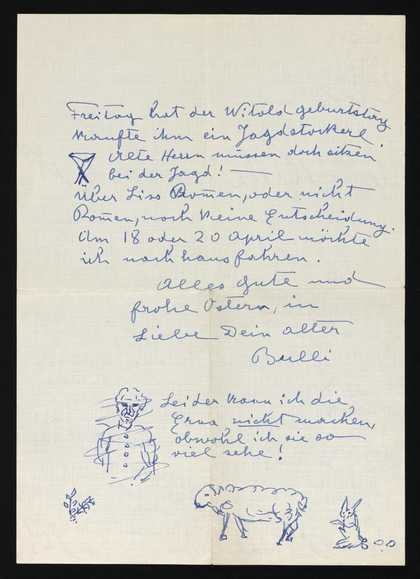 Freitag hat der Witold geburtstag
Kaufte ihm ein Jagdstockerl.
Alte Herrn müssen doch sitzen
bei der Jagd! —
Über Liss Komen, oder nicht
Komen, noch Keine Entscheidung.
Am 18 oder 20 April möchte
ich nach haus fahren.
Alles gute und
frohe Ostern, in
Liebe Dein alter
Bulli
Leider kann ich die
Erna nicht machen,
obwohl ich sie so
viel sehe!